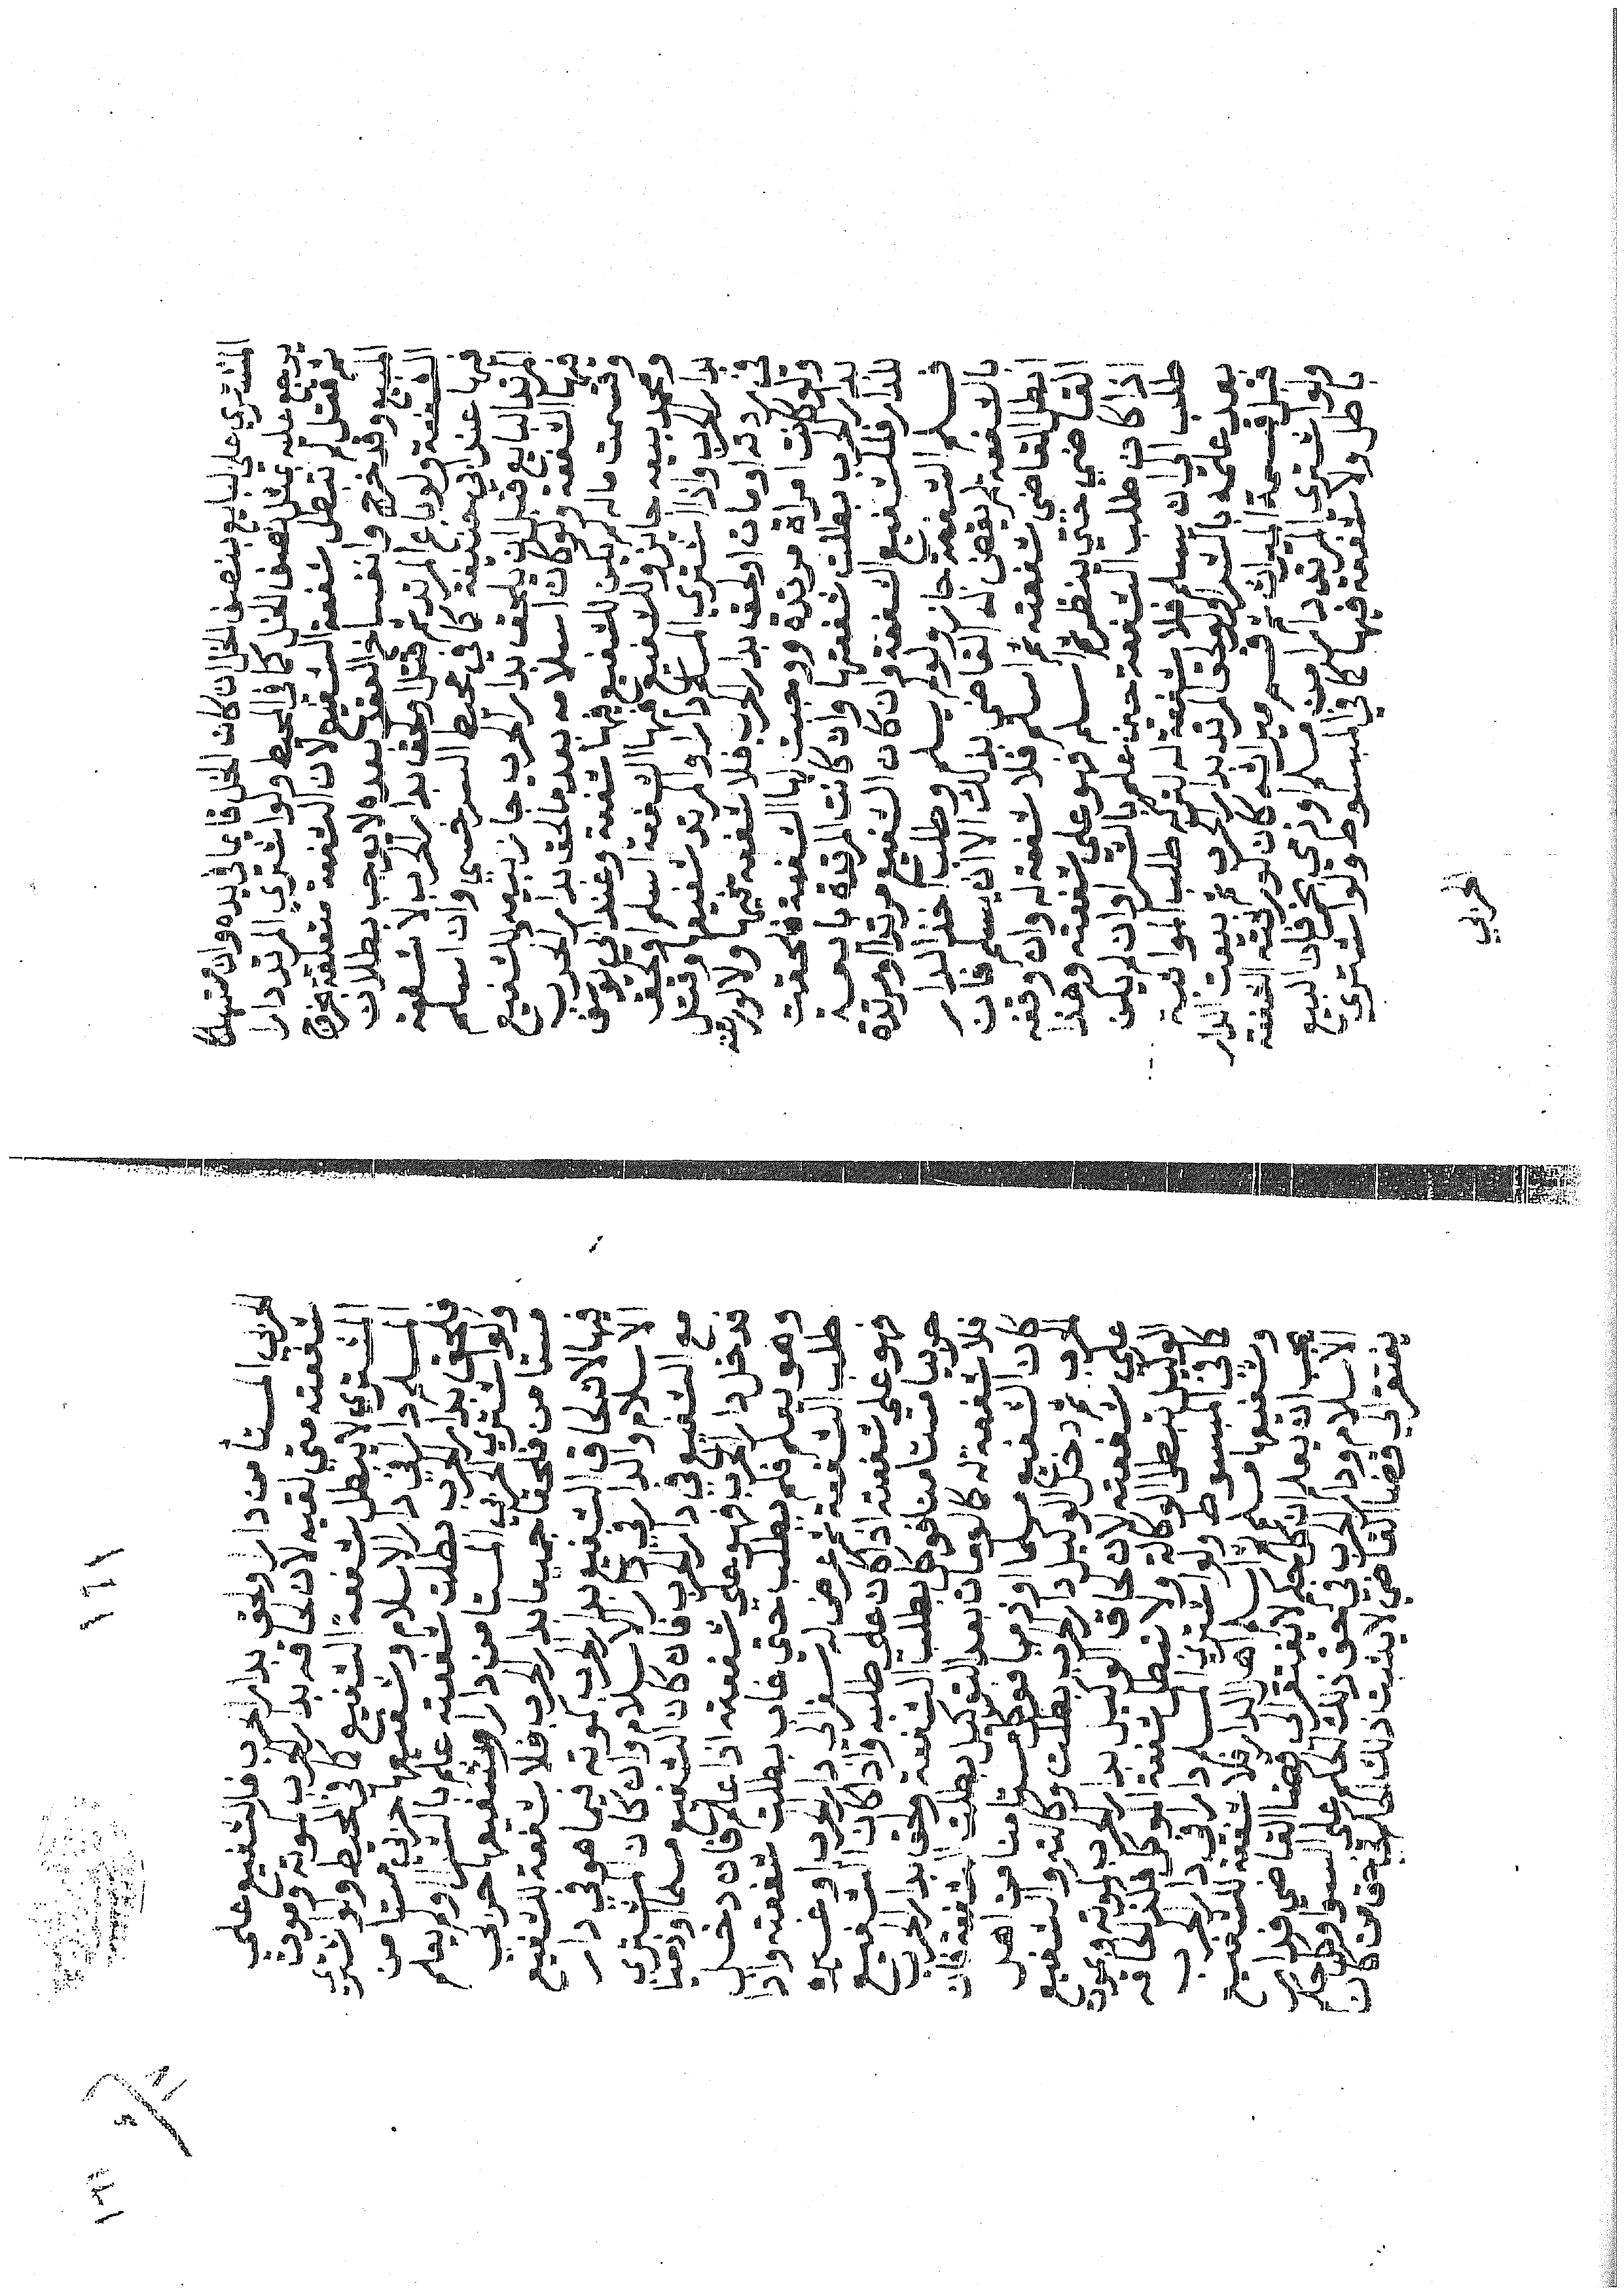 المشتري على البايع بنصف الخل ان كان الخل قايما في يده وان استهلكه
يرجع عليه بمثل نصف الخل كما في المحيط ولو اشتري المرتد دارا
ثم قتل لم تبطل شفعة الشفيع لان الشفعة متعلقة بخروج
المبيع وقد خرج وانفساخ العقد بعده لا يوجب بطلان
الشفعة ولو باع المرتد ثم قتل او لحق بدار الحرب لا شفعة
فيها عند ابي حنيفة كما في محيط السرخسي وان اسلم
المرتد البايع قبل ان يلحق بدار الحرب جاز بيعه وللشفيع
فيها الشفعة ولو كان اسلامه بعد ما لحق بدار الحرب
وقسمت ماله لم يكن للشفيع فيها شفعة وعند ابي يوسف
ومحمد بيعه جايز وللشفيع فيها الشفعة اسلم او لحق
بدار الحرب واذا اشتري المسلم دارا والمرتد شفيعها وقتل
في ردته او مات او لحق بدار الحرب فلا شفعة فيها ولا لورثته
ولو كانت امراة مرتدة ووجبت لها الشفعة فلحقت
بدار الحرب بطلت شفعتها وان كانت المرتدة بايعة
للدار فللشفيع الشفعة وان كان الشفيع مرتدا او مرتدة
فسلم الشفعة جاز ولو لم يسلم وطلب اخذ الدار
بالشفعة لم يقض له القاضي بذلك الا ان يسلم فان
ابطل القاضي شفعته ثم اسلم فلا شفعة له وان وقفه
القاضي حتي ينظر ثم اسلم فهو علي شفعته وهذا
اذا كان طلب الشفعة حين علم بالشرا وان لم يكن
طلب الي ان يسلم فلا شفعة له لتركه طلب المواثبة
بعد علمه بالشرا ولو لحق المرتد بدار الحرب ثم بيعت الدار
قبل قسمة الميراث ثم قسم ميراثه كان لورثته الشفعة
ولو اشتري المرتد دارا من مسلم او ذمي بخمر فان البيع
باطل ولا شفعة فيها كما في المبسوط ولو اشتري
الحربي
١٦١
الحربي المستامن دارا ولحق بدار الحرب فالشفيع علي
شفعته متي لقيه لان لحاقه بدار الحرب كموته وموت
المشتري لا يبطل شفعة الشفيع كما في المحيط ولو اشتري
المسلم دارا في دار الاسلام وشفيعها حربي مستامن
فلحق بدار الحرب بطلت شفعته علم بالشرا او لم يعلم
ولو اشتري الحربي المستامن دارا وشفيعها حربي
مستامن فلحقا جميعا بدار الحرب فلا شفعة للشفيع
فيها لان لحاق الشفيع بدار الحرب كموته فيما هو في دار
الاسلام والدار في دار الاسلام وان كان المشتري
مع الشفيع في دار الحرب فان كان الشفيع مسلما او ذميا
فدخل دار الحرب فهو علي شفعته اذا علم فان دخل
وهو يعلم فلم يطلب حتي غاب بطلت شفعته واذا
طلب الشفعة ثم عرض له سفر الي دار الحرب او غيره
فهو علي شفعته اذا كان علي طلبه واذا كان الشفيع
حربيا مستامنا فوكل بطلب الشفعة ولحق بدار الحرب
فلا شفعة له كما لو مات بعد التوكيل بطلت الشفعة فان
كان الشفيع مسلما او ذميا فوكل مستامنا من اهل
الحرب ثم دخل الوكيل دار الحرب بطلت وكالته والشفيع
علي شفعته لان لحاق الوكيل بدار الحرب كموته وبموت
الوكيل تبطل الوكالة ولا تبطل شفعة الموكل فكذا لحاقه
كما في المبسوط ولو اشتري المسلم دارا في دار الحرب
وشفيعها مسلم ثم اسلم اهل الدار فلا شفعة للشفيع
يجب ان يعلم ان كل حكم لا يفتقر الي قضا القاضي فدار
الاسلام ودار الحرب في حق ذلك الحكم علي السوا وكل حكم
يفتقر الي قضا القاضي لا يثبت ذلك الحكم في حق من كان